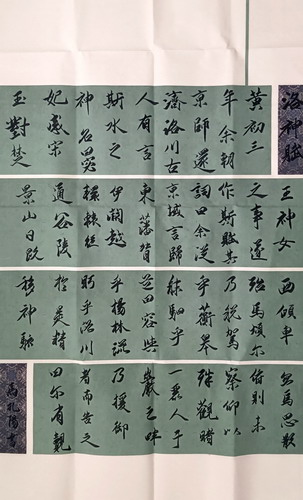 洛神賦
黃初三
年余朝
京師還
濟洛川古
人有言
斯水之
神名曰宓
妃感宋
玉對楚
王神女
之事遂
作斯賦其
詞曰余從
京域言歸
東藩背
伊闕越
轘轅經
通谷陵
景山日既
西傾車
殆馬煩爾
乃稅駕
乎蘅皋
秣駟乎
芝田容與
乎楊林流
眄乎洛川
於是精
移神駭
忽焉思散
俯則未
察仰以
殊觀睹
一麗人于
巖之畔
乃援御
者而告之
曰爾有覿